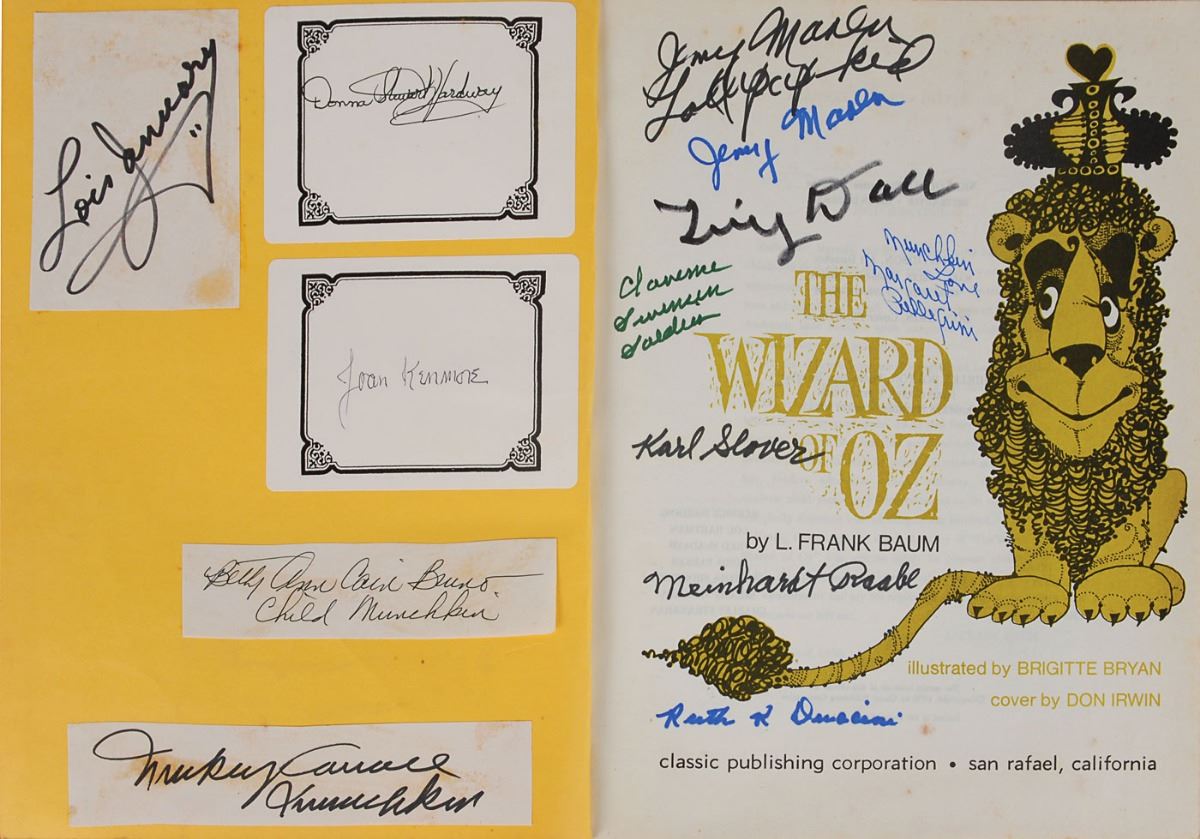 Lois January
Donna Stewart Hardway
Joan Kenmore
Betty Ann Cain Bruno
Child Munchkin
Mickey Carroll
Munchkin
Jerry Maren
Lollypop Kid
Jerry Maren
Tiny Doll
Clarence
Swensen
Soldier
Munchkin
Love
Margaret
Pellegrini
THE
WIZARD
OF OZ
Karl Slover
by L. FRANK BAUM
Meinhardt Raabe
illustrated by BRIGITTE BRYAN
cover by DON IRWIN
Ruth R Duccini
classic publishing corporation • san rafael, california